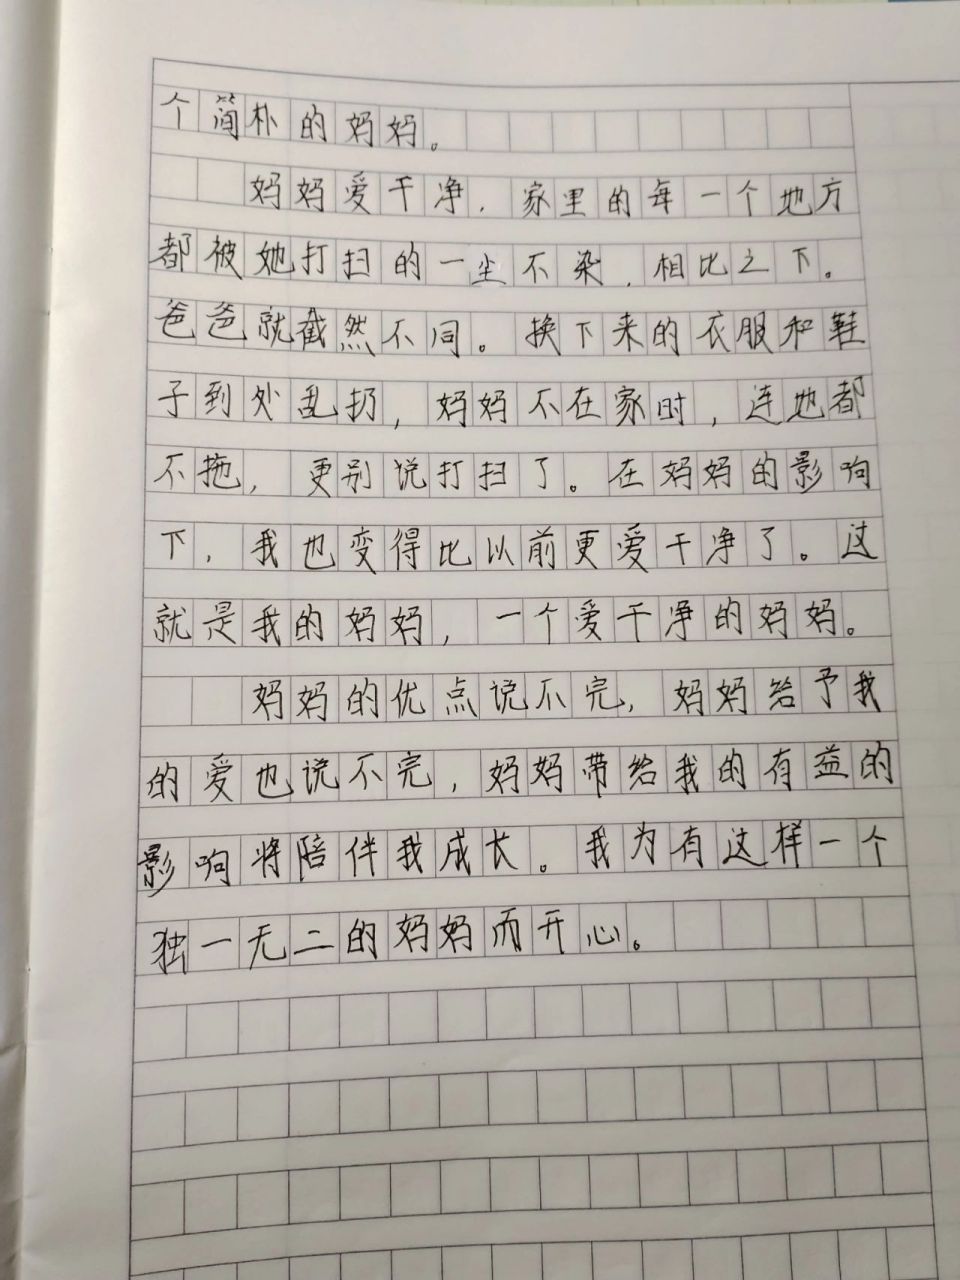 个简朴的妈妈。
妈妈爱干净，家里的每一个地方
都被她打扫的一尘不染，相比之下。
爸爸就截然不同。换下来的衣服和鞋
子到处乱扔，妈妈不在家时，连地都
不拖，更别说打扫了。在妈妈的影响
下，我也变得比以前更爱干净了。这
就是我的妈妈，一个爱干净的妈妈。
妈妈的优点说不完，妈妈给予我
的爱也说不完，妈妈带给我的有益的
影响将陪伴我成长。我为有这样一个
独一无二的妈妈而开心。